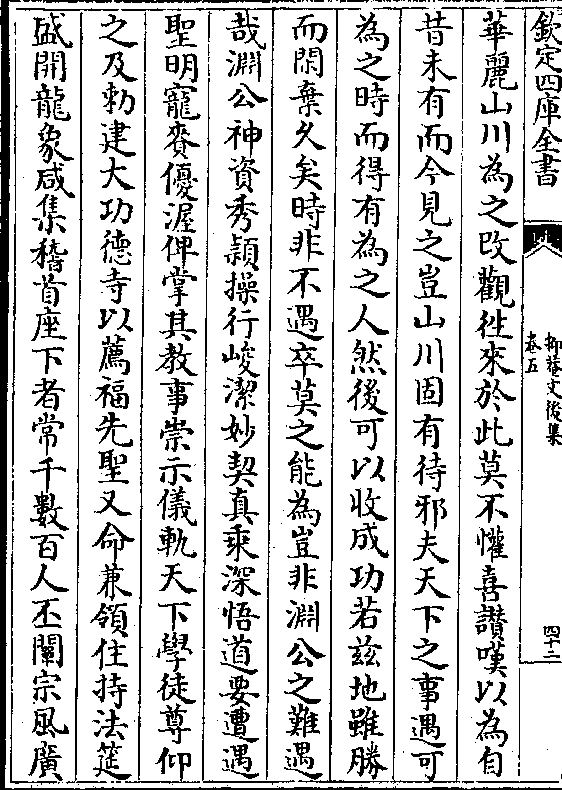 欽定四庫全書
柳菴文後集
卷五
四十二
華麗山川為之改觀徃來於此莫不懽喜讃嘆以為自
昔未有而今見之豈山川固有待邪夫天下之事遇可
為之時而得有為之人然後可以收成功若兹地雖勝
而閑棄久矣時非不遇卒莫之能為豈非淵公之難遇
哉淵公神資秀頴操行峻潔妙契真乘深悟道要遭遇
聖明寵賚優渥俾掌其教事崇示儀軌天下學徒尊仰
之及勅建大功德寺以薦福先聖又命兼領住持法筵
盛開龍象咸集稽首座下者常千數百人丕闡宗風廣